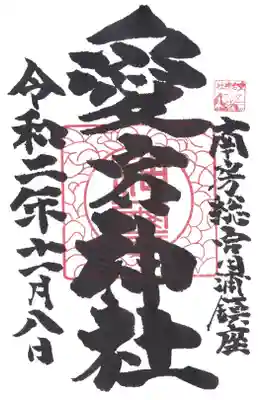 南房総富浦鎮座
愛宕神社
令和二年十一月八日